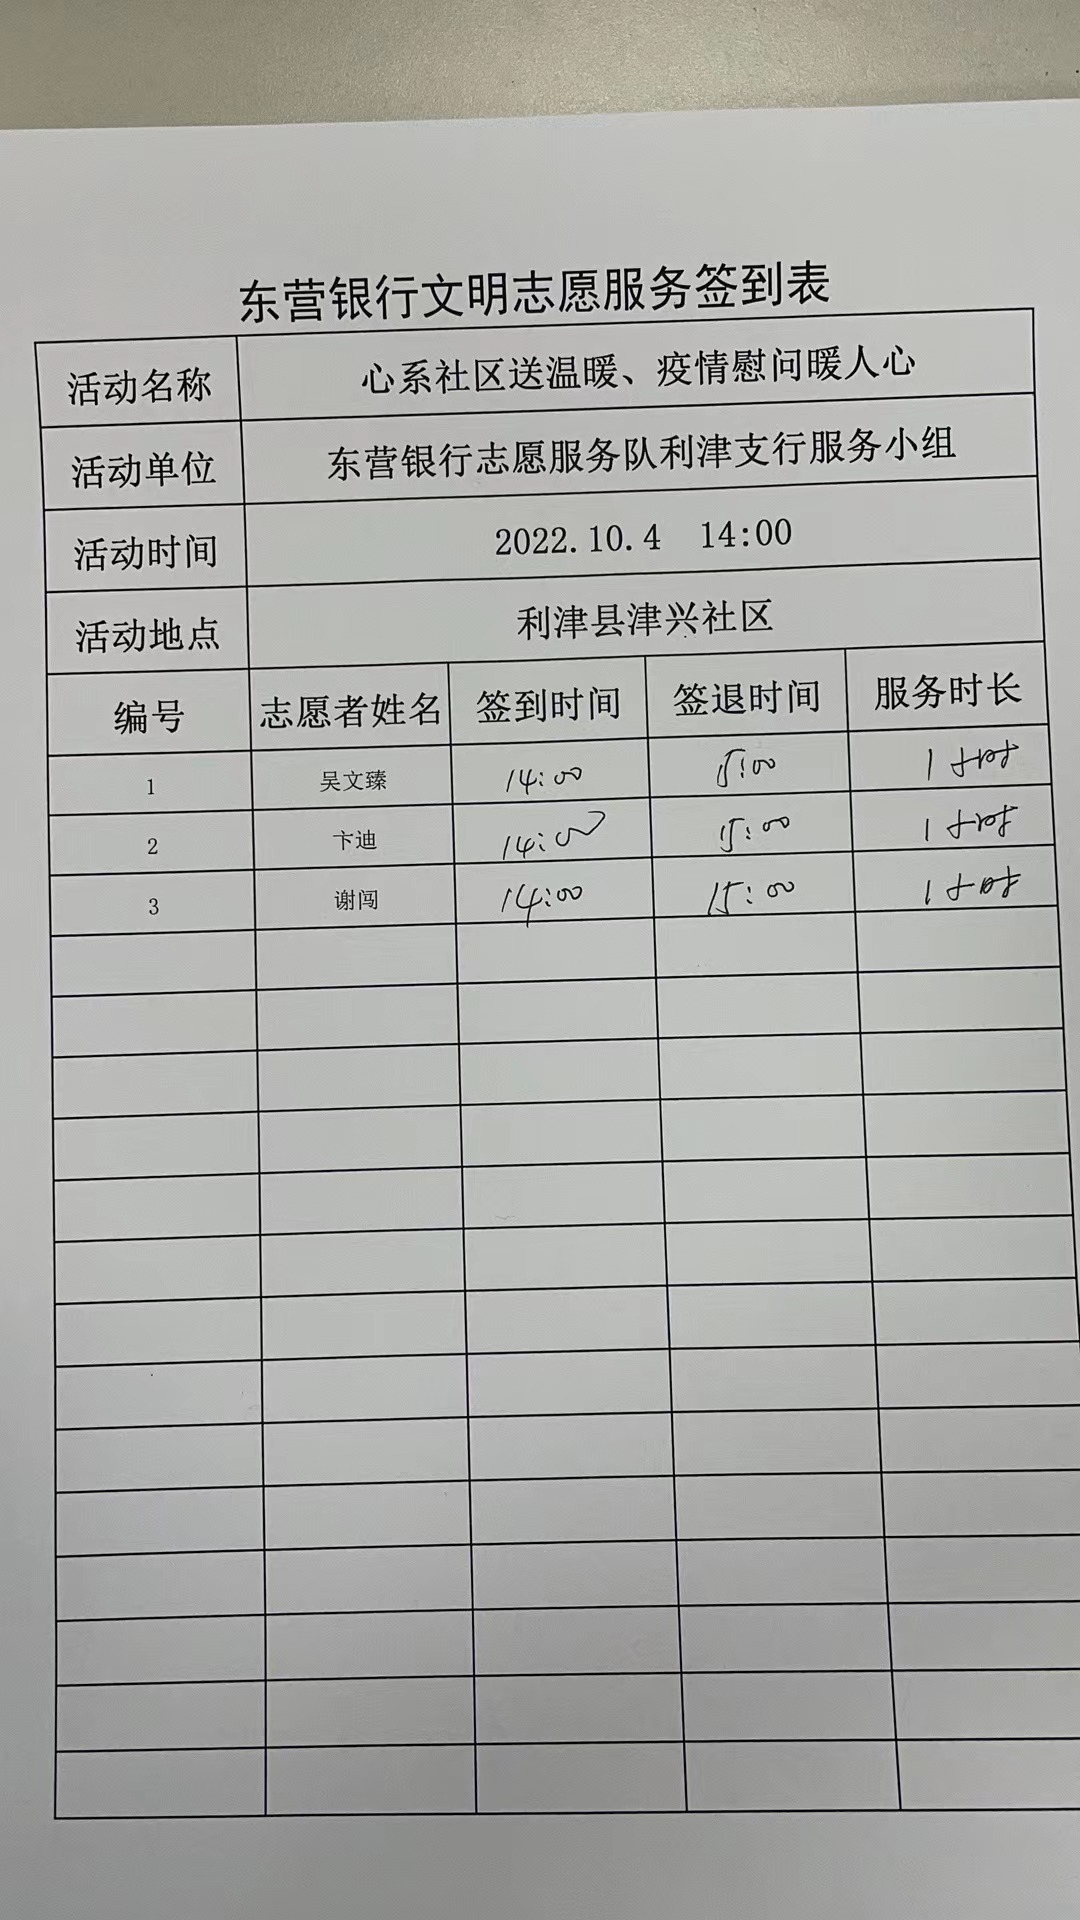 东营银行文明志愿服务签到表
活动名称 心系社区送温暖、疫情慰问暖人心
活动单位 东营银行志愿服务队利津支行服务小组
活动时间 2022.10.4 14:00
活动地点 利津县津兴社区
编号 志愿者姓名 签到时间 签退时间 服务时长
1 吴文臻 14:00 15:00 1小时
2 卞迪 14:00 15:00 1小时
3 谢闯 14:00 15:00 1小时